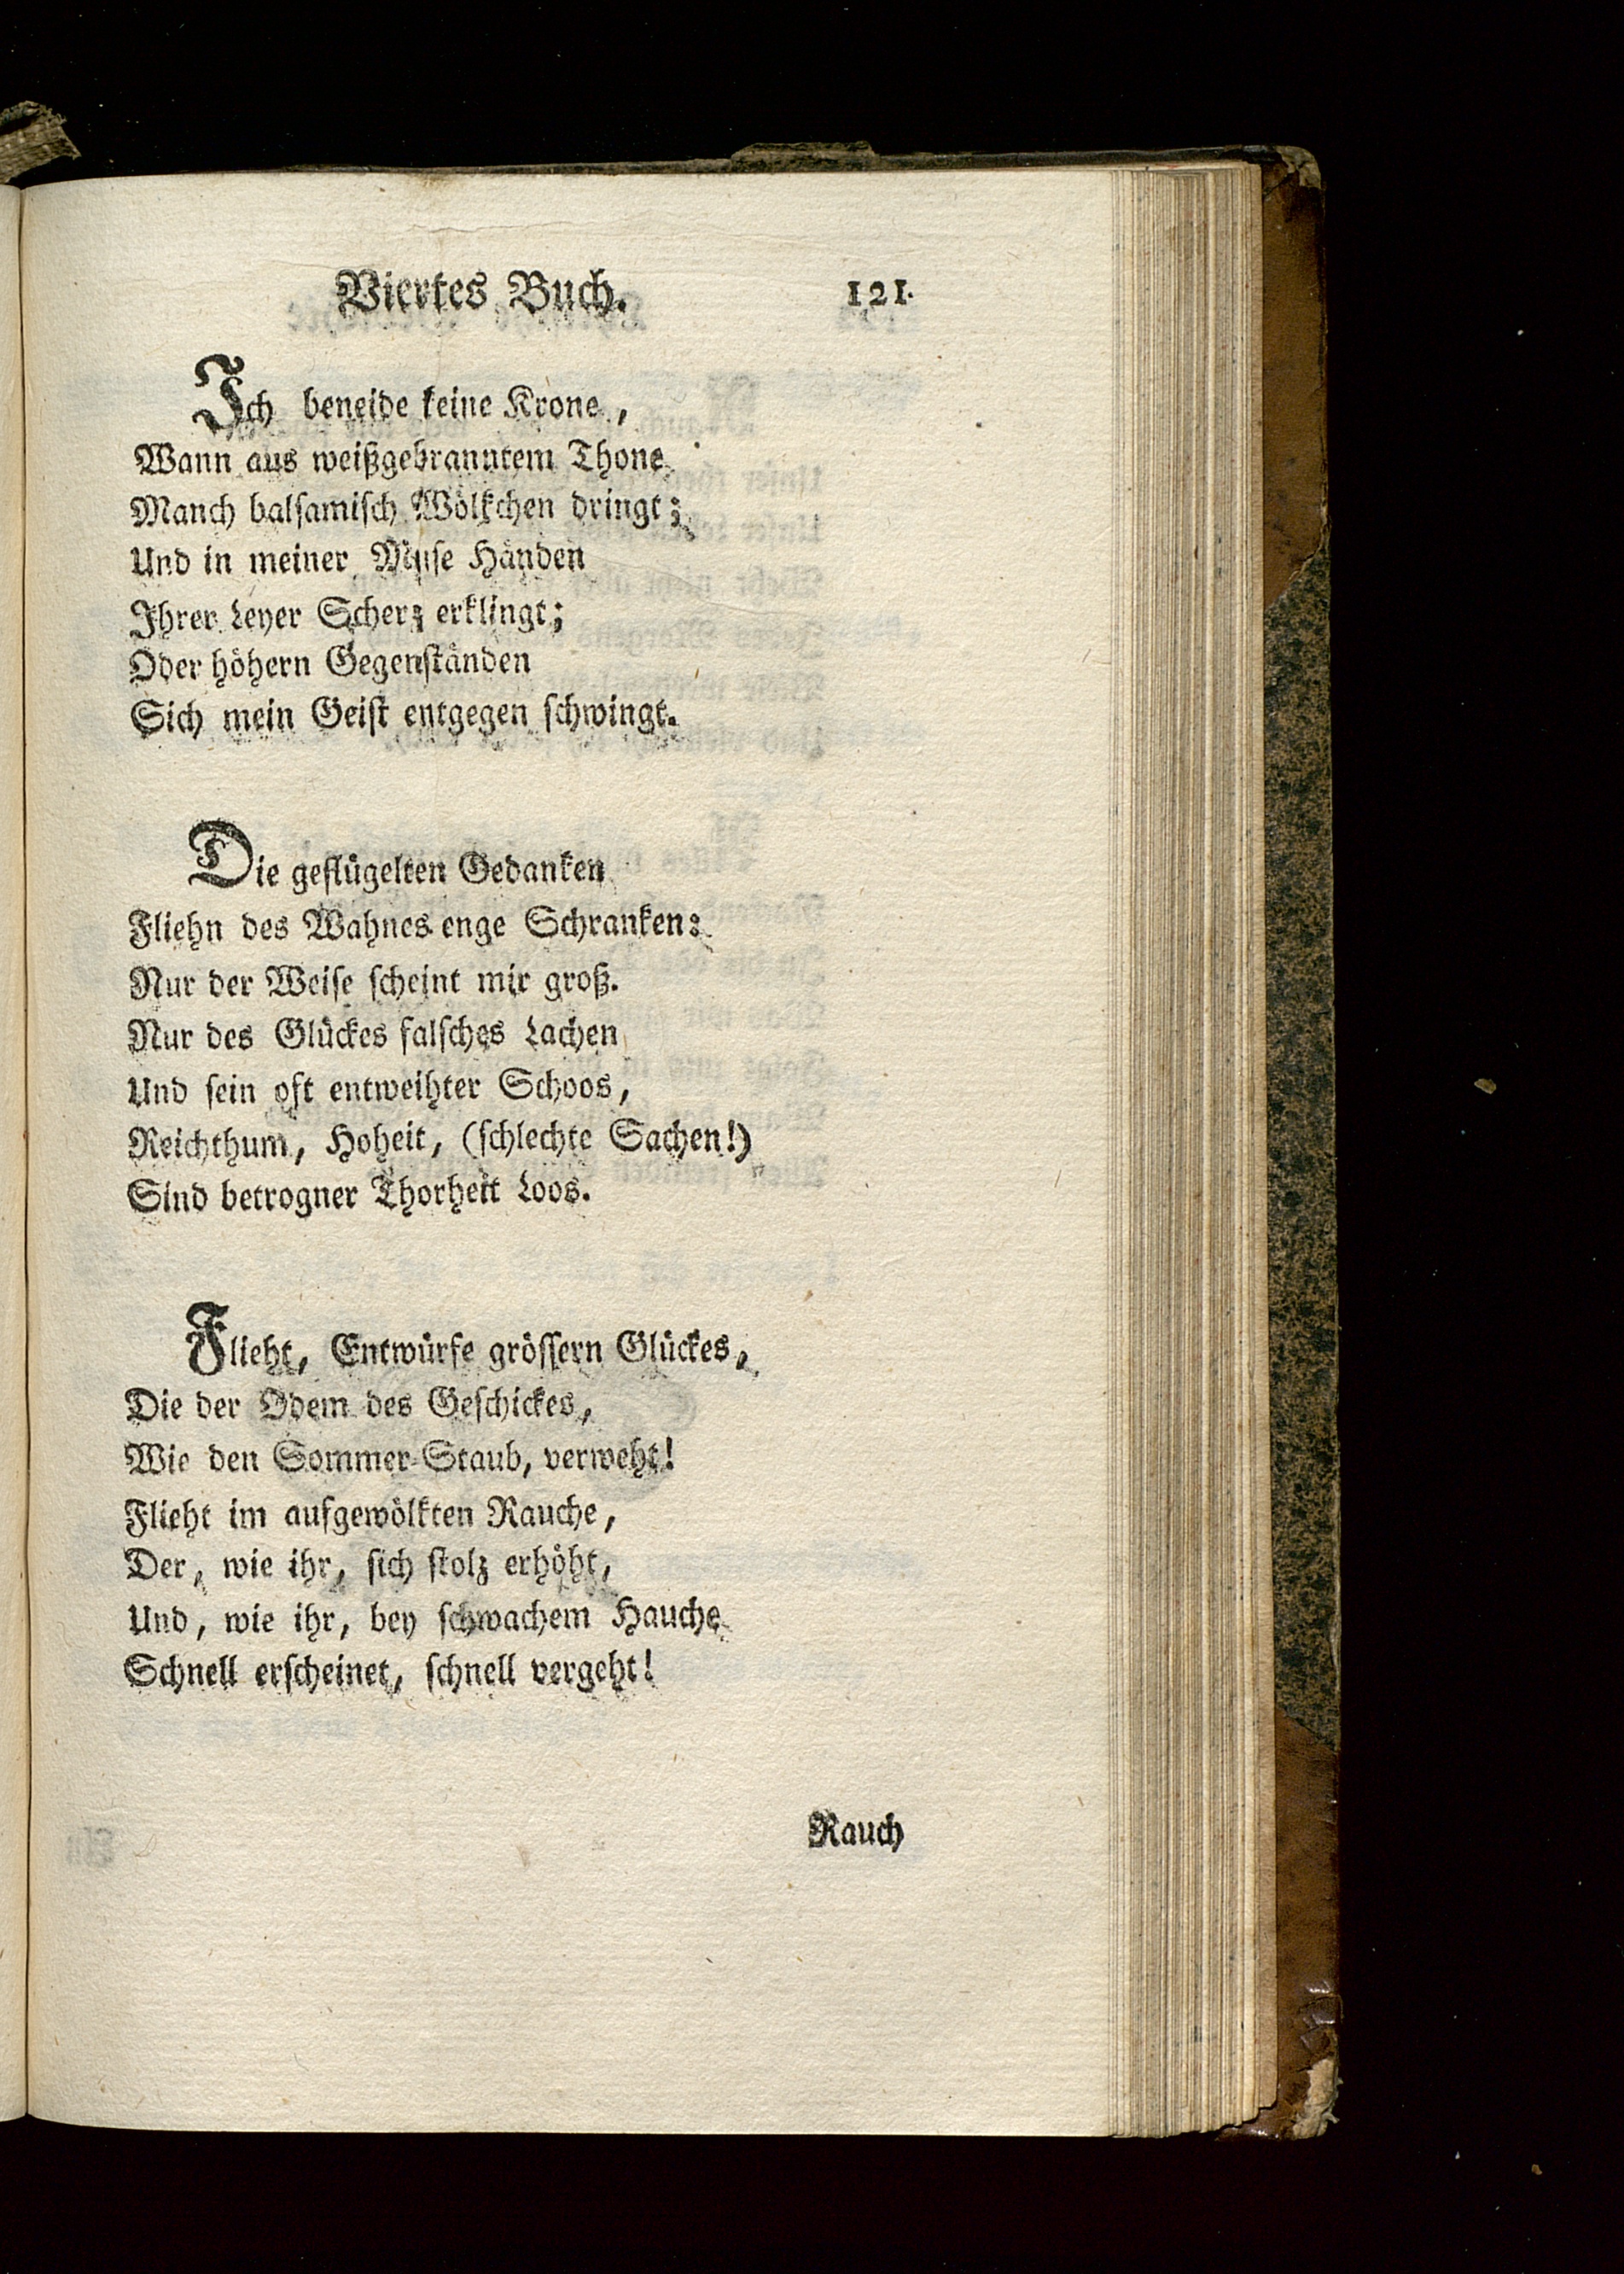 Viertes Buch. 121.
Ich beneide keine Krone,
Wann aus weißgebranntem Thone
Manch balsamisch Wölkchen dringt;
Und in meiner Muse Händen
Ihrer Leyer Scherz erklingt;
Oder höhern Gegenständen
Sich mein Geist entgegen schwingt.
Die geflügelten Gedanken
Fliehn des Wahnes enge Schranken:
Nur der Weise scheint mir groß.
Nur des Glückes falsches Lachen
Und sein oft entweihter Schoos,
Reichthum, Hoheit, (schlechte Sachen!)
Sind betrogner Thorheit Loos.
Flieht, Entwürfe grössern Glückes,
Die der Odem des Geschickes,
Wie den Sommer-Staub, verweht!
Flieht im aufgewölkten Rauche,
Der, wie ihr, sich stolz erhöht,
Und, wie ihr, bey schwachem Hauche
Schnell erscheinet, schnell vergeht!
Rauch